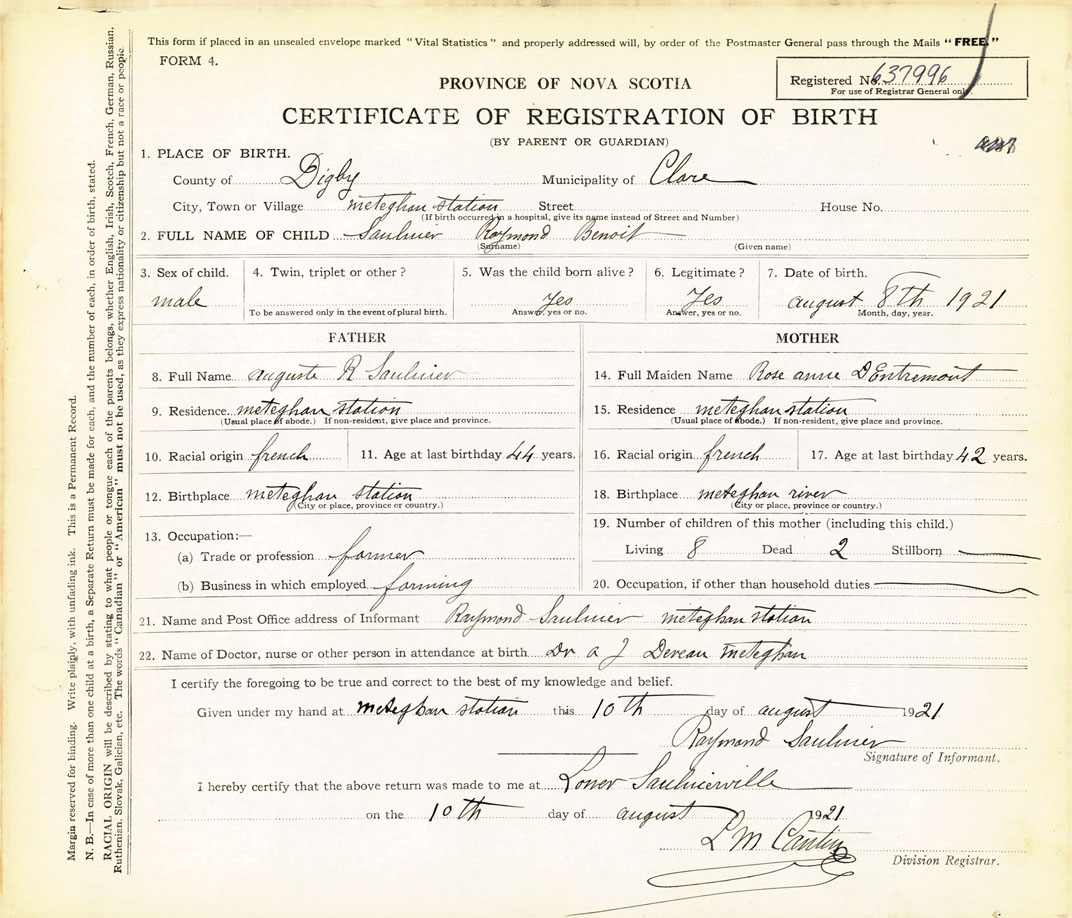 This form if placed in an unsealed envelope marked "Vital Statistics" and properly addressed will, by order of the Postmaster General pass through the Mails "FREE."
FORM 4.
Registered No. 637996
For use of Registrar General only.
PROVINCE OF NOVA SCOTIA
CERTIFICATE OF REGISTRATION OF BIRTH
(BY PARENT OR GUARDIAN)
1. PLACE OF BIRTH.
County of Digby Municipality of Clare
City, Town or Village meteghan station Street House No.
(If birth occurred in a hospital, give its name instead of Street and Number)
2. FULL NAME OF CHILD Saulnier Raymond Benoit
(Surname) (Given name)
3. Sex of child. 4. Twin, triplet or other? 5. Was the child born alive? 6. Legitimate? 7. Date of birth.
male Yes Yes august 8th 1921
To be answered only in the event of plural birth. Answer, yes or no. Answer, yes or no. Month, day, year.
FATHER
8. Full Name auguste R Saulnier
9. Residence meteghan station
(Usual place of abode.) If non-resident, give place and province.
10. Racial origin french 11. Age at last birthday 44 years.
12. Birthplace meteghan station
(City or place, province or country.)
13. Occupation:—
(a) Trade or profession farmer
(b) Business in which employed farming
MOTHER
14. Full Maiden Name Rose anne D'Entremont
15. Residence meteghan station
(Usual place of abode.) If non-resident, give place and province.
16. Racial origin french 17. Age at last birthday 42 years.
18. Birthplace meteghan river
(City or place, province or country.)
19. Number of children of this mother (including this child.)
Living 8 Dead 2 Stillborn
20. Occupation, if other than household duties
21. Name and Post Office address of Informant Raymond Saulnier meteghan station
22. Name of Doctor, nurse or other person in attendance at birth Dr a J Deveau meteghan
I certify the foregoing to be true and correct to the best of my knowledge and belief.
Given under my hand at meteghan station this 10th day of august 1921
Raymond Saulnier
Signature of Informant.
I hereby certify that the above return was made to me at Lower Saulnierville
on the 10th day of august 1921
L M
Division Registrar.
Margin reserved for binding. Write plainly, with unfading ink. This is a Permanent Record.
N. B.—In case of more than one child at a birth, a Separate Return must be made for each, and the number of each, in order of birth, stated.
RACIAL ORIGIN will be described by stating to what people or tongue each of the parents belongs, whether English, Irish, Scotch, French, German, Russian,
Ruthenian, Slovak, Galician, etc. The words "Canadian" or "American" must not be used, as they express nationality or citizenship but not a race or people